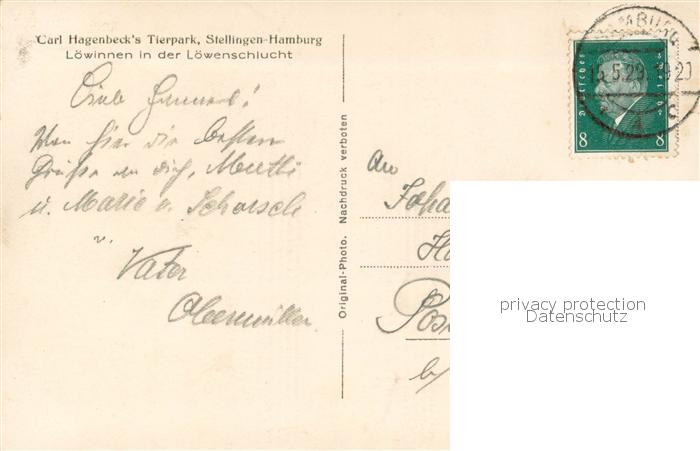 Carl Hagenbeck's Tierpark, Stellingen-Hamburg
Löwinnen in der Löwenschlucht
Von hier die besten
Grüße an dich, Mutti
u. Marie u. Schorsch
v.
Vater
Obermüller.
Original-Photo. Nachdruck verboten
An
Joha
Ha
Pos
b/
Deutsches Reich
8 8
MBURG
15.5.29.19 20
privacy protection
Datenschutz